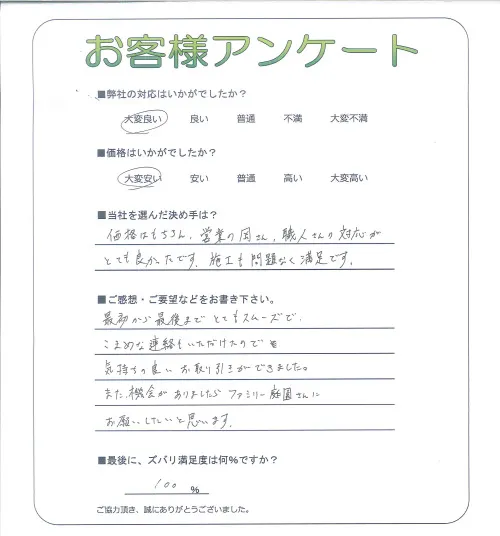 お客様アンケート
■弊社の対応はいかがでしたか？
大変良い 良い 普通 不満 大変不満
■価格はいかがでしたか？
大変安い 安い 普通 高い 大変高い
■当社を選んだ決め手は？
価格はもちろん、営業の岡さん、職人さんの対応が
とても良かったです。施工も問題なく満足です。
■ご感想・ご要望などをお書き下さい。
最初から最後まで とてもスムーズで、
こまめな連絡もいただけたので
気持ちの良い お取り引きができました。
また、機会がありましたら ファミリー庭園さんに
お願いしたいと思います。
■最後に、ズバリ満足度は何％ですか？
100 ％
ご協力頂き、誠にありがとうございました。